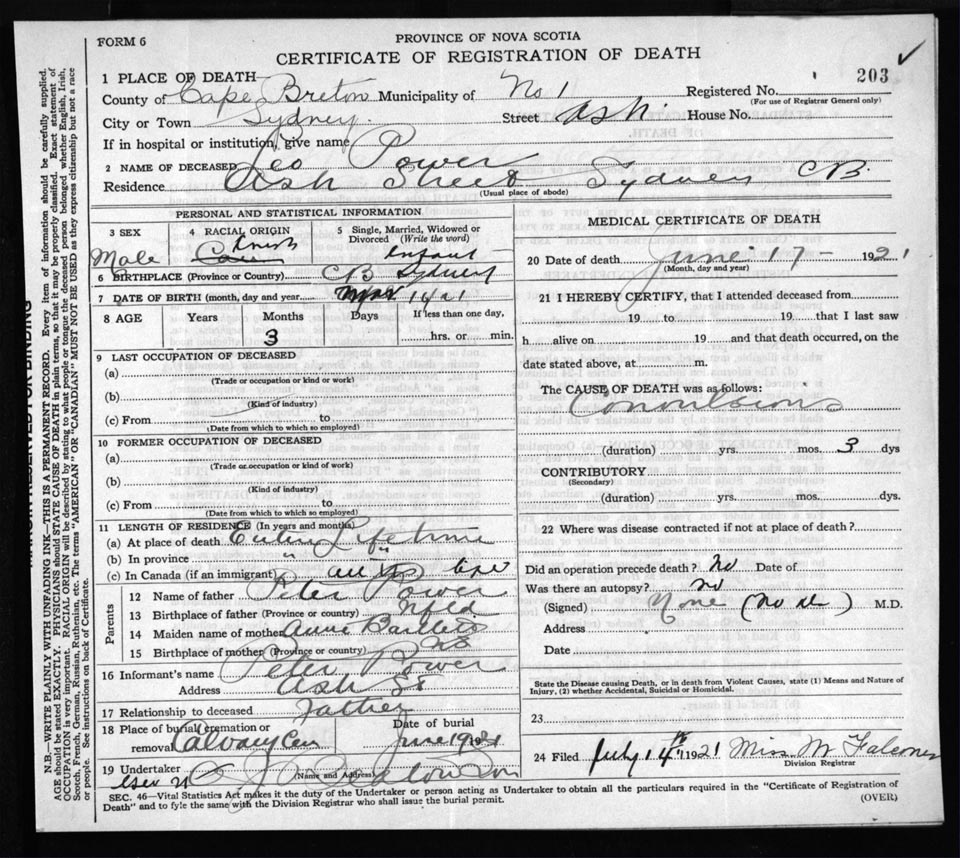 FORM 6
PROVINCE OF NOVA SCOTIA
CERTIFICATE OF REGISTRATION OF DEATH
203
1 PLACE OF DEATH—
County of Cape Breton Municipality of No 1 Registered No.
(For use of Registrar General only)
City or Town Sydney. Street Ash. House No.
If in hospital or institution, give name
2 NAME OF DECEASED Leo Power
Residence Ash Street Sydney CB.
(Usual place of abode)
PERSONAL AND STATISTICAL INFORMATION
3 SEX
Male
4 RACIAL ORIGIN
Irish
5 Single, Married, Widowed or Divorced (Write the word)
Infant
6 BIRTHPLACE (Province or Country) CB Sydney
7 DATE OF BIRTH (month, day and year) Mar
8 AGE Years Months Days If less than one day,
3 hrs. or min.
9 LAST OCCUPATION OF DECEASED
(a)
(Trade or occupation or kind or work)
(b)
(Kind of industry)
(c) From to
(Date from which to which so employed)
10 FORMER OCCUPATION OF DECEASED
(a)
(Trade or occupation or kind of work)
(b)
(Kind of industry)
(c) From to
(Date from which to which so employed)
11 LENGTH OF RESIDENCE (In years and months)
(a) At place of death Entire Lifetime
(b) In province " "
(c) In Canada (if an immigrant)
Parents
12 Name of father Peter Power
13 Birthplace of father (Province or country) Nfld
14 Maiden name of mother Annie Bartlett
15 Birthplace of mother (Province or country)
16 Informant's name Peter Power
Address Ash St
17 Relationship to deceased Father
18 Place of burial, cremation or removal Calvary Cem Date of burial June 19 1921
19 Undertaker
(Name and Address)
MEDICAL CERTIFICATE OF DEATH
20 Date of death June 17 — 1921
(Month, day and year)
21 I HEREBY CERTIFY, that I attended deceased from
19 to 19 that I last saw
h alive on 19 and that death occurred, on the
date stated above, at m.
The CAUSE OF DEATH was as follows:
Convulsions
(duration) yrs. mos. 3 dys
CONTRIBUTORY
(Secondary)
(duration) yrs. mos. dys.
22 Where was disease contracted if not at place of death?
Did an operation precede death? No Date of
Was there an autopsy? No
(Signed) None (No dr) M.D.
Address
Date
State the Disease causing Death, or in death from Violent Causes, state (1) Means and Nature of
Injury, (2) whether Accidental, Suicidal or Homicidal.
23
24 Filed July 14th 1921 Miss M Falconer
Division Registrar
SEC. 46—Vital Statistics Act makes it the duty of the Undertaker or person acting as Undertaker to obtain all the particulars required in the "Certificate of Registration of
Death" and to fyle the same with the Division Registrar who shall issue the burial permit.
(OVER)
N.B.—WRITE PLAINLY WITH UNFADING INK—THIS IS A PERMANENT RECORD. Every item of information should be carefully supplied.
AGE should be stated EXACTLY. PHYSICIANS should STATE CAUSE OF DEATH in plain terms, so that it may be properly classified. Exact statement of
OCCUPATION is very important. RACIAL ORIGIN will be described by stating to what people or tongue the deceased person belonged whether English, Irish,
Scotch, French, German, Russian, Ruthenian, etc. The terms "AMERICAN" OR "CANADIAN" MUST NOT BE USED as they express citizenship but not a race
or people. See instructions on back of Certificate.